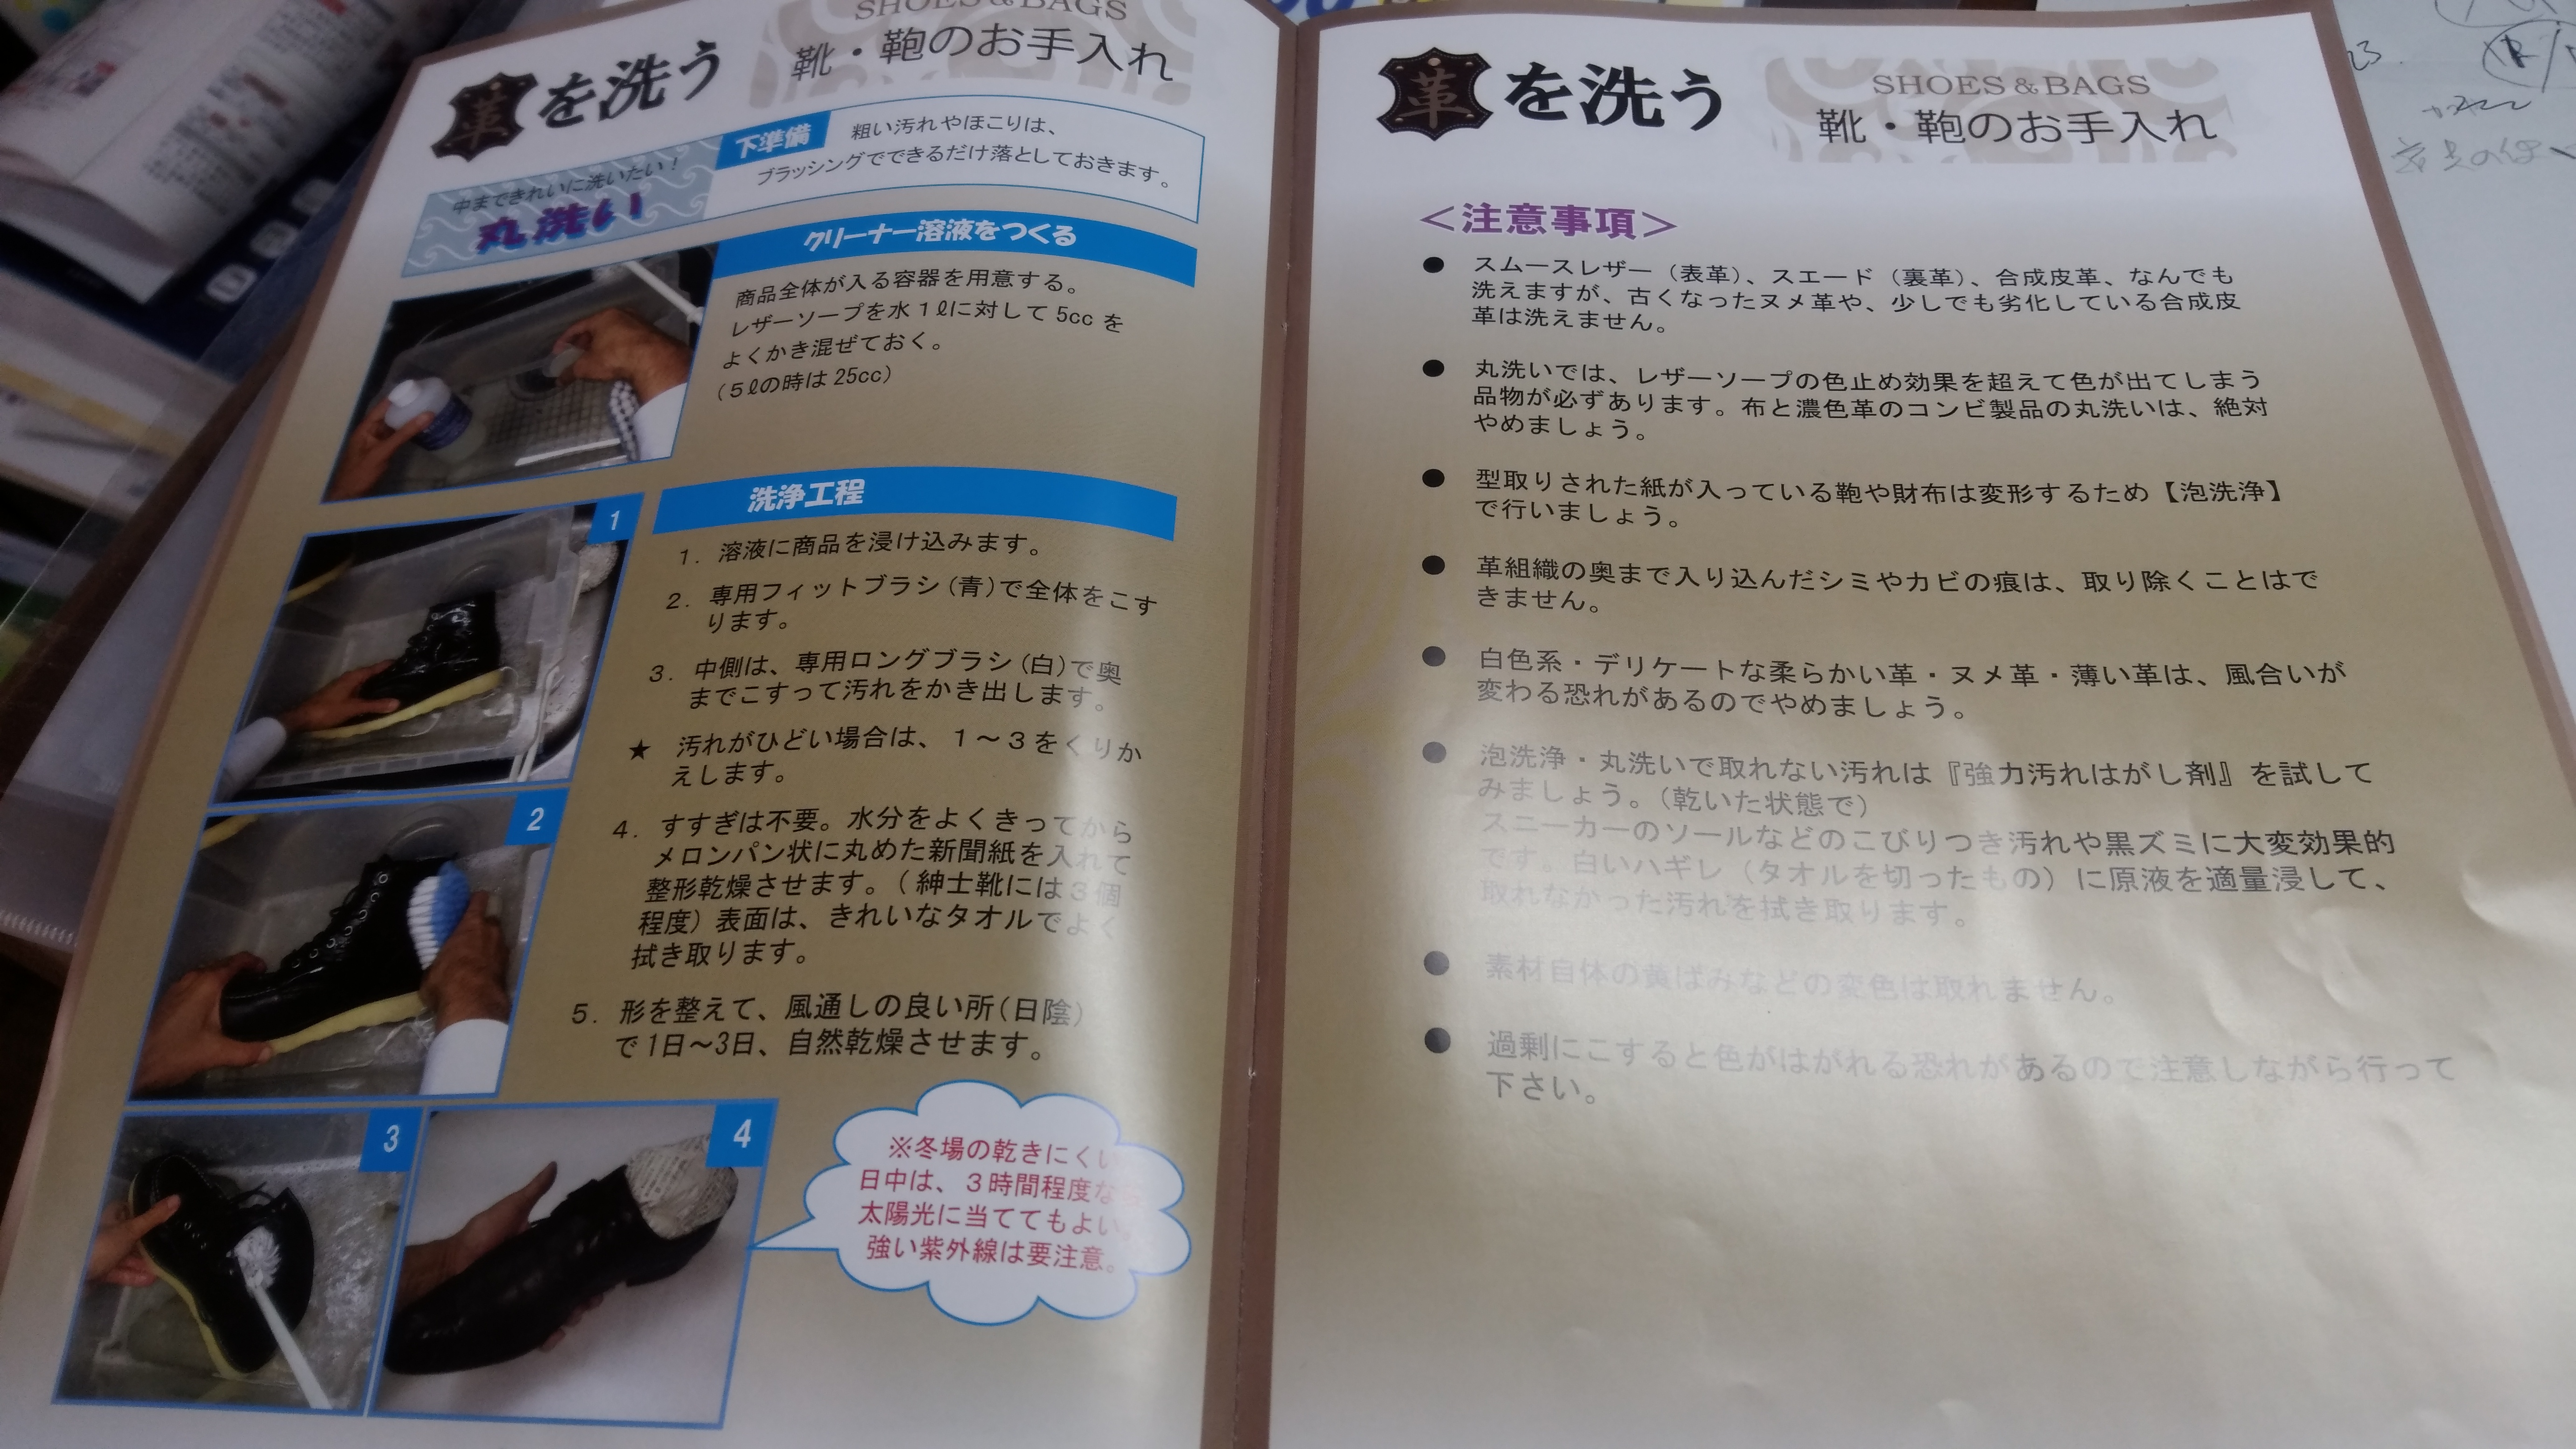 SHOES & BAGS
革を洗う
靴・鞄のお手入れ
中まできれいに洗いたい!
丸洗い
下準備
粗い汚れやほこりは、
ブラッシングでできるだけ落としておきます。
クリーナー溶液をつくる
商品全体が入る容器を用意する。
レザーソープを水1ℓに対して5ccを
よくかき混ぜておく。
(5ℓの時は25cc)
洗浄工程
1. 溶液に商品を浸け込みます。
2. 専用フィットブラシ(青)で全体をこす
ります。
3. 中側は、専用ロングブラシ(白)で奥
までこすって汚れをかき出します。
★ 汚れがひどい場合は、1~3をくりか
えします。
4. すすぎは不要。水分をよくきってから
メロンパン状に丸めた新聞紙を入れて
整形乾燥させます。(紳士靴には3個
程度)表面は、きれいなタオルでよく
拭き取ります。
5. 形を整えて、風通しの良い所(日陰)
で1日~3日、自然乾燥させます。
1
2
3
4
※冬場の乾きにくい
日中は、3時間程度なら
太陽光に当ててもよい。
強い紫外線は要注意。
革を洗う
SHOES & BAGS
靴・鞄のお手入れ
<注意事項>
● スムースレザー(表革)、スエード(裏革)、合成皮革、なんでも
洗えますが、古くなったヌメ革や、少しでも劣化している合成皮
革は洗えません。
● 丸洗いでは、レザーソープの色止め効果を超えて色が出てしまう
品物が必ずあります。布と濃色革のコンビ製品の丸洗いは、絶対
やめましょう。
● 型取りされた紙が入っている鞄や財布は変形するため【泡洗浄】
で行いましょう。
● 革組織の奥まで入り込んだシミやカビの痕は、取り除くことはで
きません。
● 白色系・デリケートな柔らかい革・ヌメ革・薄い革は、風合いが
変わる恐れがあるのでやめましょう。
● 泡洗浄・丸洗いで取れない汚れは『強力汚れはがし剤』を試して
みましょう。(乾いた状態で)
スニーカーのソールなどのこびりつき汚れや黒ズミに大変効果的
です。白いハギレ(タオルを切ったもの)に原液を適量浸して、
取れなかった汚れを拭き取ります。
● 素材自体の黄ばみなどの変色は取れません。
● 過剰にこすると色がはがれる恐れがあるので注意しながら行って
下さい。